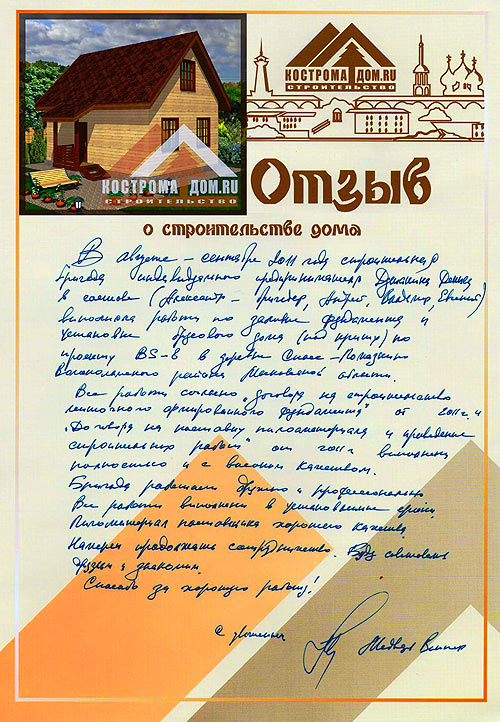 КОСТРОМА ДОМ.RU
СТРОИТЕЛЬСТВО
КОСТРОМА ДОМ.RU
СТРОИТЕЛЬСТВО
Отзыв
о строительстве дома
В августе – сентябре 2011 года строительная
бригада индивидуального предпринимателя
в составе (Александр – бригадир, Андрей, Владимир, Евгений)
выполнила работы по заливке фундамента и
установке брусового дома (под крышу) по
проекту BS-8 в деревне Спасс-Помазкино
Волоколамского района Московской области.
Все работы согласно "договора на строительство
ленточного армированного фундамента" от 2011г. и
"Договора на поставку пиломатериала и проведение
строительных работ" от 2011г. выполнены
полностью и с высоким качеством.
Бригада работает дружно и профессионально.
Все работы выполнены в установленные сроки.
Пиломатериал поставщика хорошего качества.
Намерен продолжать сотрудничество. Буду советовать
друзьям и знакомым.
Спасибо за хорошую работу!
С уважением